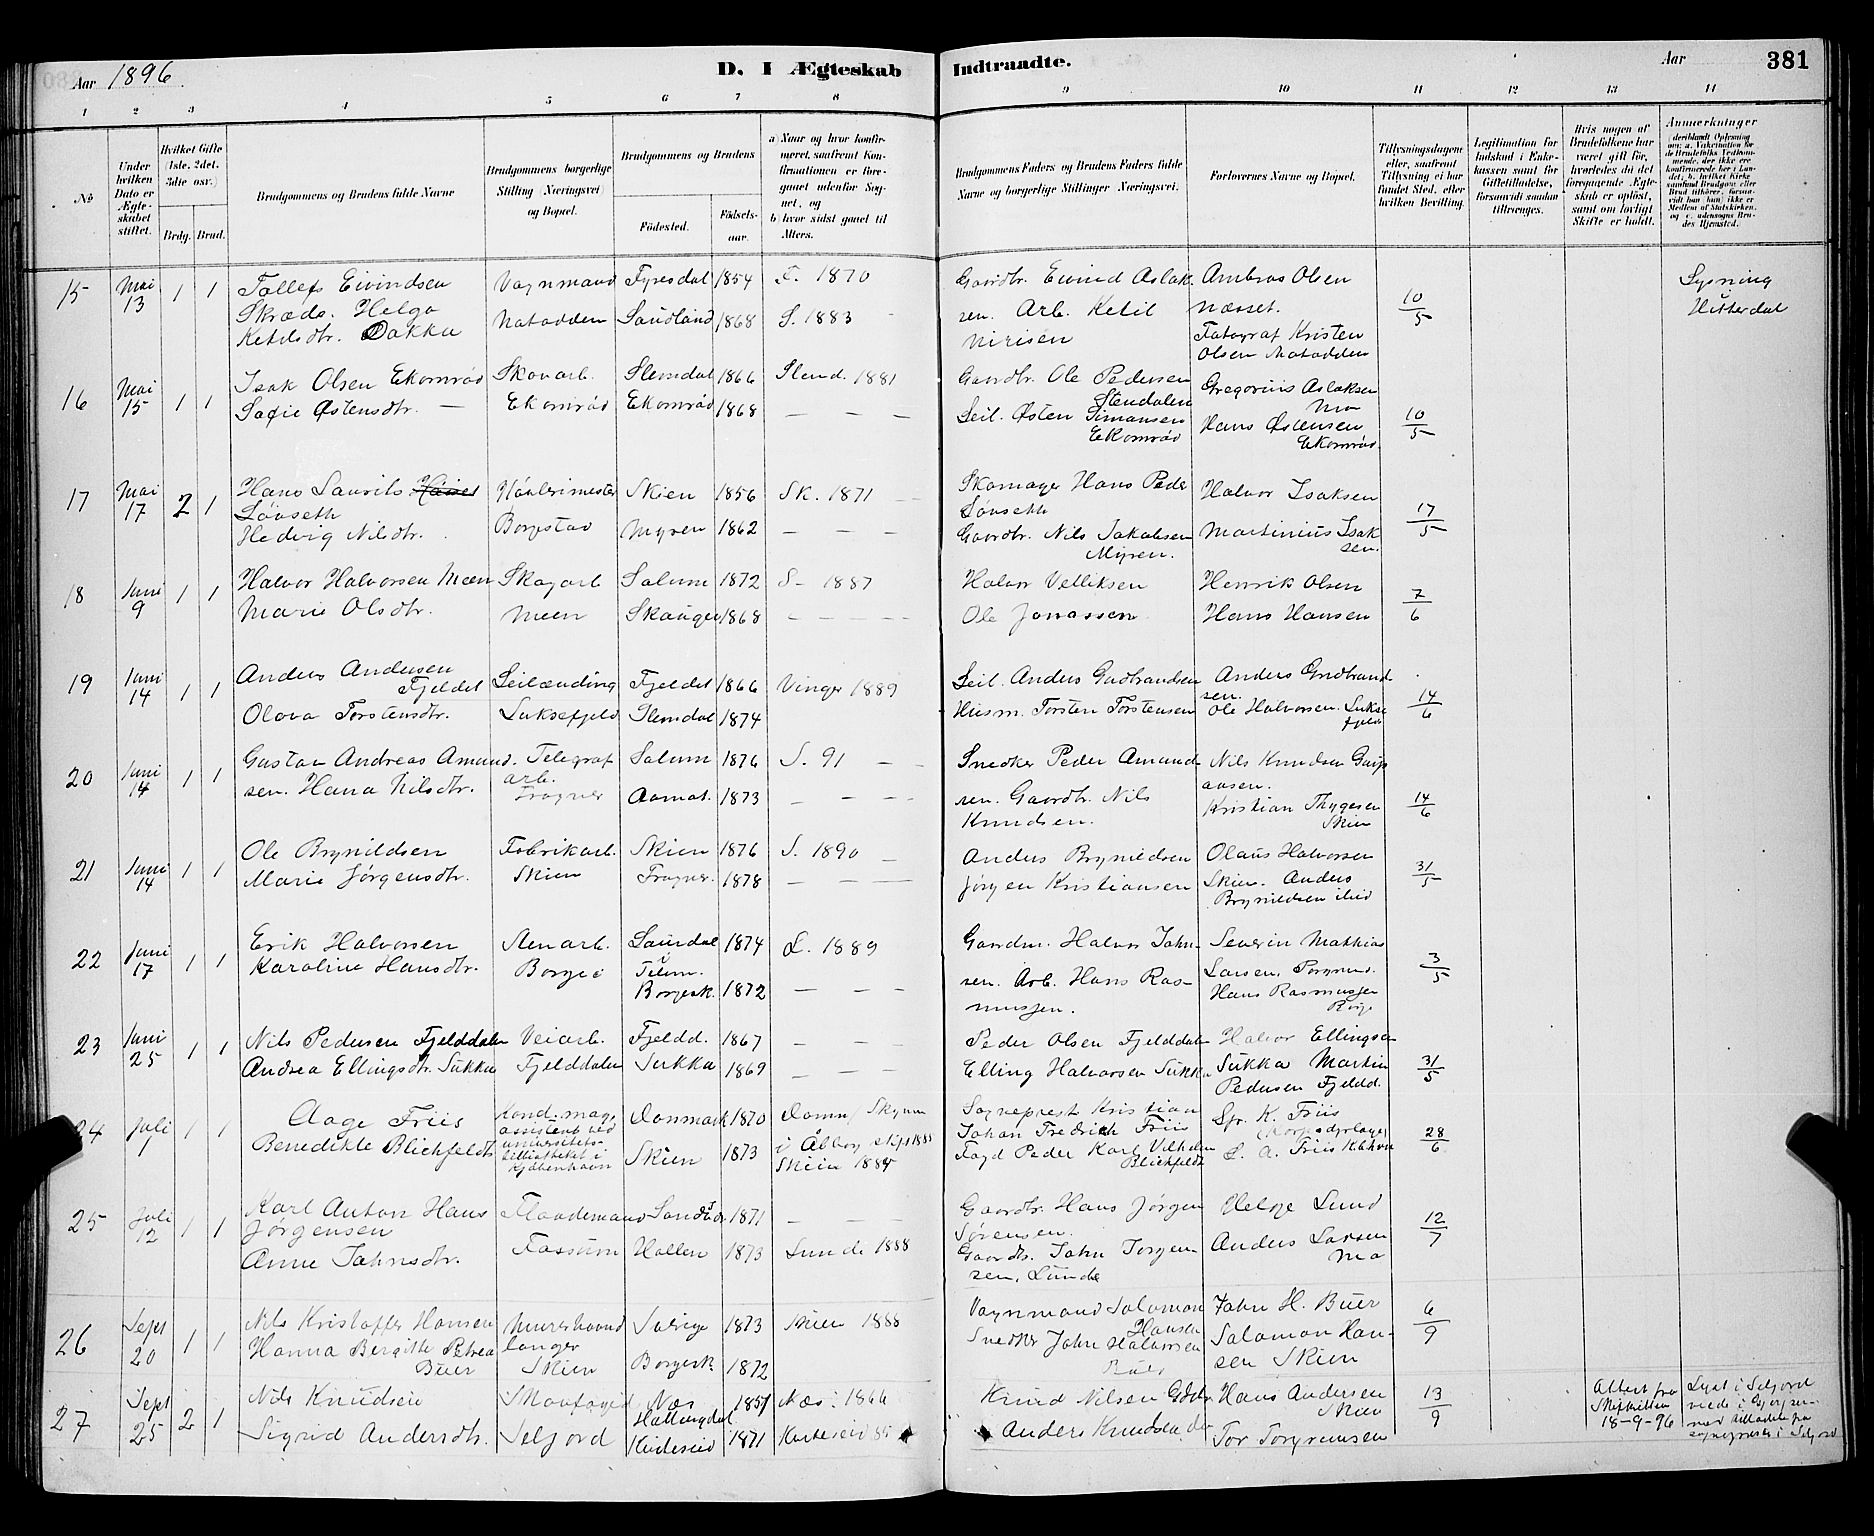 Aar 1896.
D. I Ægteskab Indtraadte.
Aar 381
1 2 3 4 5 6 7 8 9 10 11 12 13 14
No
Under hvilken Dato er Ægteskabet stiftet.
Hvilket Gifte (1ste, 2det, 3die osv.)
Brdg. Brud.
Brudgommens og Brudens fulde Navne
Brudgommens borgerlige Stilling (Næringsvei) og Bopæl.
Brudgommens og Brudens
Fødested.
Fødselsaar.
a) Naar og hvor konfirmeret, saafremt Konfirmationen er foregaaet udenfor Sognet, og
b) hvor sidst gaaet til Alters.
Brudgommens Faders og Brudens Faders fulde Navne og borgerlige Stillinger Næringsvei.
Forlovernes Navne og Bopæl.
Tillysningsdagene eller, saafremt Tillysning ei har fundet Sted, efter hvilken Bevilling.
Legitimation for Indskud i Enkekassen samt for Giftetilladelse, forsaavidt saadan tiltrænges.
Hvis nogen af Brudefolkene har været gift før, hvorledes da det foregaaende Ægteskab er opløst, samt om lovligt Skifte er holdt.
Anmerkninger
15 Mai 13 1 1 Tallef Eivindsen Vognmand Fyresdal 1854 F. 1870 Gaardbr. Eivind Aslak- Ambros Olsen 10/5 Lysning
Skræds. Helga Notodden Sauland 1868 S. 1883 sen. Arb. Ketil Næsset. Hitterdal
Ketilsdtr. Bakka Nirisen Fotograf Kristen
Olsen Notodden
16 Mai 15 1 1 Isak Olsen Ekornrød Skovarb. Slemdal 1866 Slemd. 1881 Gaardbr. Ole Pedersen Gregorius Aslaksen 10/5
Sofie Østensdtr. — Ekornrød Ekornrød 1868 — — — Stendalen Mo
Seil. Østen Simonsen Hans Østensen
Ekornrød Ekornrød.
17 Mai 17 2 1 Hans Laurits Skien 1856 Sk. 1871 Skomager Hans Peder Halvor Isaksen 17/5
Løvseth Borgstad Løvseth
Hedvig Nilsdtr. Myren 1862 — — — Gaardbr. Nils Jakobsen Martinius Isak
Myren. sen.
18 Juni 9 1 1 Halvor Halvorsen Meen Skogarb Solum 1872 S— 1887 Halvor Velliksen Henrik Olsen 7/6
Marie Olsdtr. Meen Skauger 1868 — — — Ole Jonassen Hans Hansen
19 Juni 14 1 1 Anders Andersen
Fjeldet Seilænding Fjeldet 1866 Vinger 1889 Seil. Anders Gudbrandsen Anders Gudbrand 14/6
sen.
Olava Torstensdtr. Luksefjeld Slemdal 1874 Husm. Torsten Torstensen Ole Halvorsen. Lukse
fjeld
20 Juni 14 1 1 Gustav Andreas Amund- Telegraf Solum 1876 S. 91 — — Snedker Peder Amund Nils Knudsen 14/6
sen. Hana Nilsdtr. arb. Frogner 1873 — — — sen. Gaardbr. Nils Kristian Thygesen
Knudsen. Skien
21 Juni 14 1 1 Ole Brynildsen Fabrikarb. Skien 1876 S. 1890 — Anders Brynildsen Olaus Halvorsen 31/5
Marie Jørgensdtr. Skien Frogner. 1878 — — — Jørgen Kristiansen Skien. Anders
Brynildsen ibid
22 Juni 17 1 1 Erik Halvorsen Stenarb. 1874 L. 1889 Gaardm. Halvor John- Severin Mathias 3/5
Karoline Hansdtr. Borge i Telem. sen. Arb. Hans Ras- Larsen,
Borgesk. 1872 — — — mussen. Hans Rasmussen
23 Juni 25 1 1 Nils Pedersen Fjelddalen Veiarb. Fjeldd. 1867 — — — Peder Olsen Fjelddalen Halvor Ellingsen 31/5
Andrea Ellingsdtr. Sukka Fjelddalen Sukka 1869 — — — Elling Halvorsen Sukka Sukka Martin
Pedersen Fjeldd.
24 Juli 1 1 1 Aage Friis kand. mag. Danmark 1870 Sogneprest Kristian Spr. K. Friis 28/6
assistent ved Johan Fredrich Friis
Benedikte Blichfeldt universitets- Skien 1873 i Ålborg Fogd Peder Karl Vilhelm L. A. Friis
bibliotheket i Skien 1884 Blichfeldt
Kjøbenhavn
25 Juli 12 1 1 Karl Anton Hans Flaademand 1871 — — — Gaardbr. Hans Jørgen Helge Lund 12/7
Jørgensen Sørensen.
Anne Johnsdtr. Fossum Hollen 1873 Lunde 1888 Gaardbr. John Jørgen Anders Larsen
sen, Lunde Mo
26 Sept 20 1 1 Nils Kristoffer Hansen Murerhaand Sverige 1873 Skien 1888 Vognmand Salomon John H. Buer 6/9
Hansen
Hanna Bergitte Petrea langer Snedker John Halvorsen Salomon Han-
Buer Skien Borgesk. 1872 Buer sen Skien
27 Sept 25 2 1 Nils Knudsen Skovfoged Næs 1851 Næs: 1866 Knud Nilsen Gdbr. Hans Andersen 13/9 Attest fra Lyst i Seljord
Hallingdal Skien Skifteretten
Sigrid Andersdtr. Seljord Kviteseid 1871 Kviteseid 85 Anders Knudsen Tor Torgrimsen 18-9-96
sogneprest i Seljord